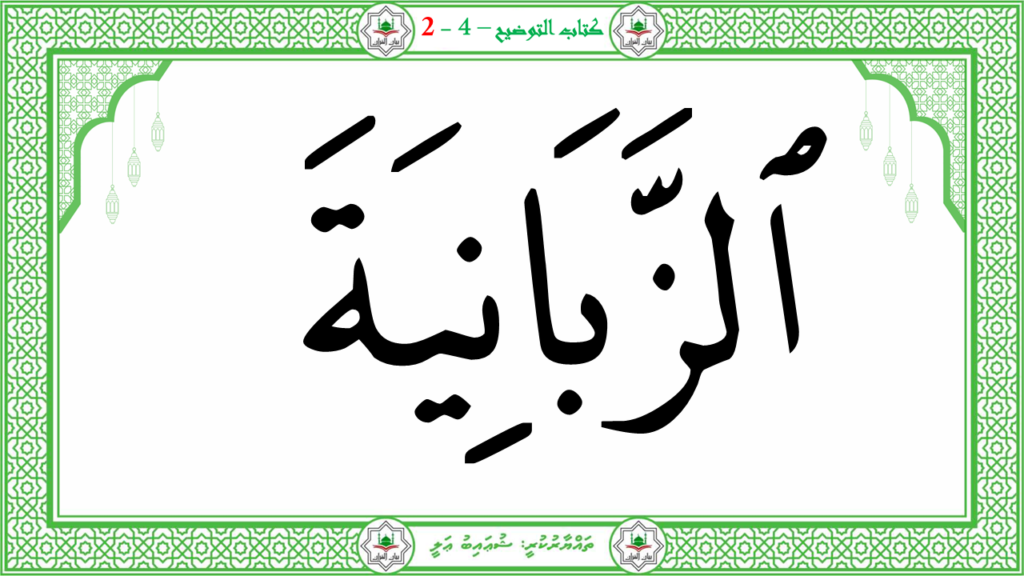 كتاب التوضيح – 4 - 2
ٱلزَّبَانِيَةَ
ތައްޔާރުކުރީ: ޝުޢައިބު ޢަލީ